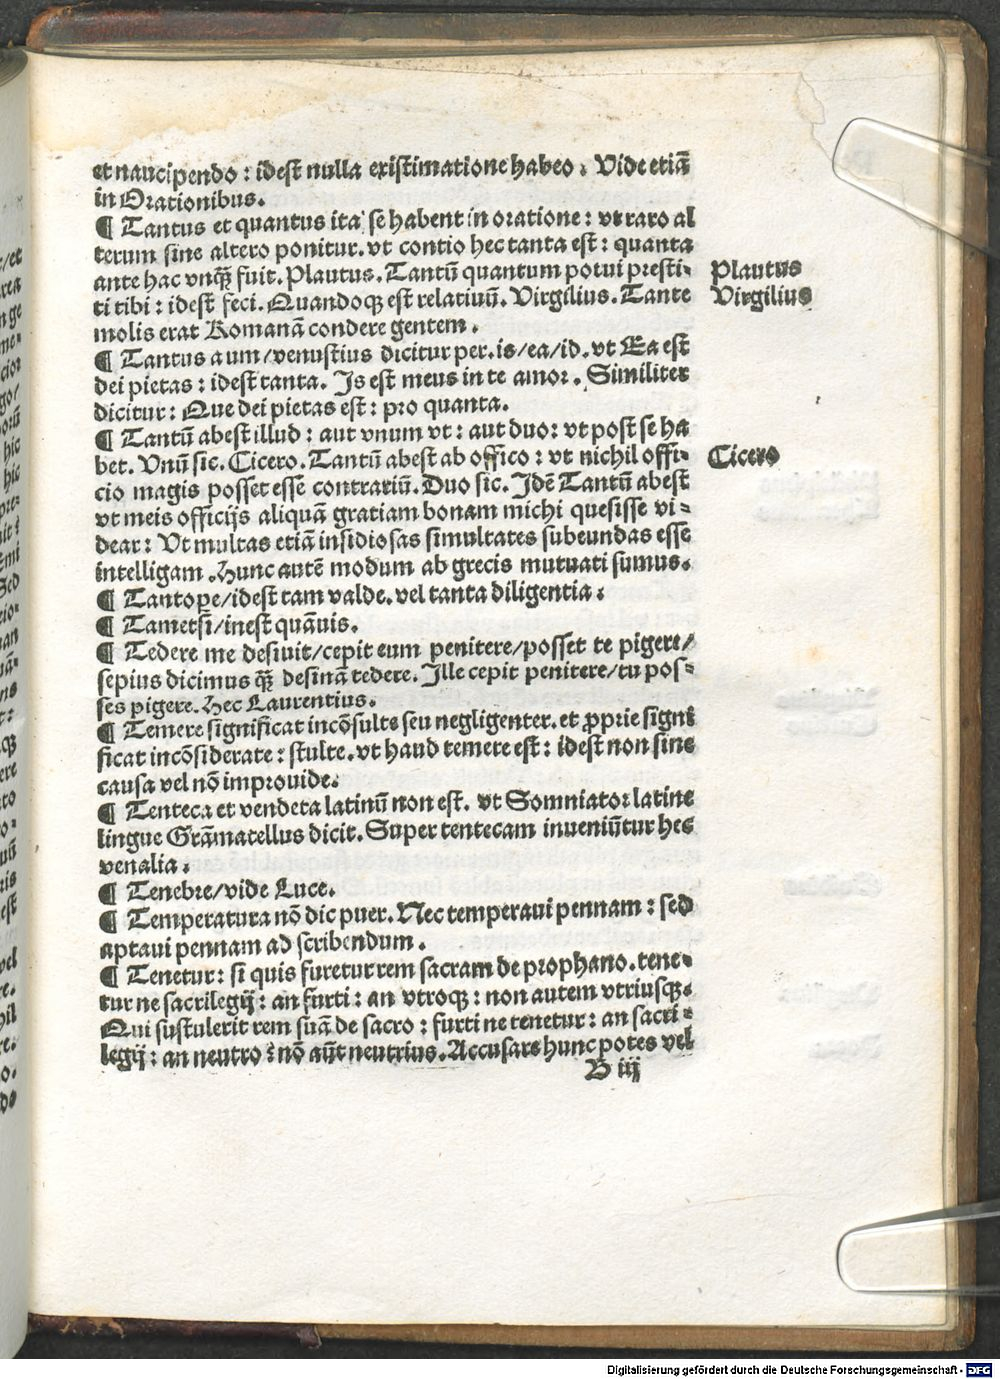 et naucipendo : idest nulla existimatione habeo . Vide etiā
in Orationibus.
¶ Tantus et quantus ita se habent in oratione : vt raro al
terum sine altero ponitur. vt contio hec tanta est : quanta
ante hac vnqꝫ fuit. Plautus. Tantū quantum potui presti-
ti tibi : idest feci. Quandoqꝫ est relatiuū. Virgilius. Tante
molis erat Romanā condere gentem .
¶ Tantus a um/venustius dicitur per. is/ea/id. vt Ea est
dei pietas : idest tanta. Is est meus in te amor . Similiter
dicitur : Que dei pietas est : pro quanta.
¶ Tantū abest illud : aut vnum vt : aut duo : vt post se ha
bet. Vnū sic. Cicero. Tantū abest ab offico : vt nichil offi-
cio magis posset esse contrariū. Duo sic. Idē Tantū abest
vt meis officijs aliquā gratiam bonam michi quesisse vi-
dear : Vt multas etiā insidiosas simultates subeundas esse
intelligam . Hunc autē modum ab grecis mutuati sumus.
¶ Tantope/idest tam valde. vel tanta diligentia .
¶ Tametsi/inest quāuis.
¶ Tedere me desiuit/cepit eum penitere/posset te pigere/
sepius dicimus qꝫ desinā tedere. Ille cepit penitere/tu pos-
ses pigere. Hec Laurentius.
¶ Temere significat incōsulte seu negligenter. et proprie signi
ficat incōsiderate : stulte. vt haud temere est : idest non sine
causa vel nō improuide.
¶ Tenteca et vendeta latinū non est. vt Somniator latine
lingue Grāmatellus dicit. Super tentecam inueniūtur hec
venalia .
¶ Tenebre/vide Luce.
¶ Temperatura nō dic puer. Nec temperaui pennam : sed
aptaui pennam ad scribendum .
¶ Tenetur : si quis furetur rem sacram de prophano. tene-
tur ne sacrilegij : an furti : an vtroqꝫ : non autem vtriusqꝫ.
Qui sustulerit rem suā de sacro : furti ne tenetur : an sacri-
legij : an neutro : nō aūt neutrius. Accusare hunc potes vel
B iij
Plautus
Virgilius
Cicero
Digitalisierung gefördert durch die Deutsche Forschungsgemeinschaft - DFG